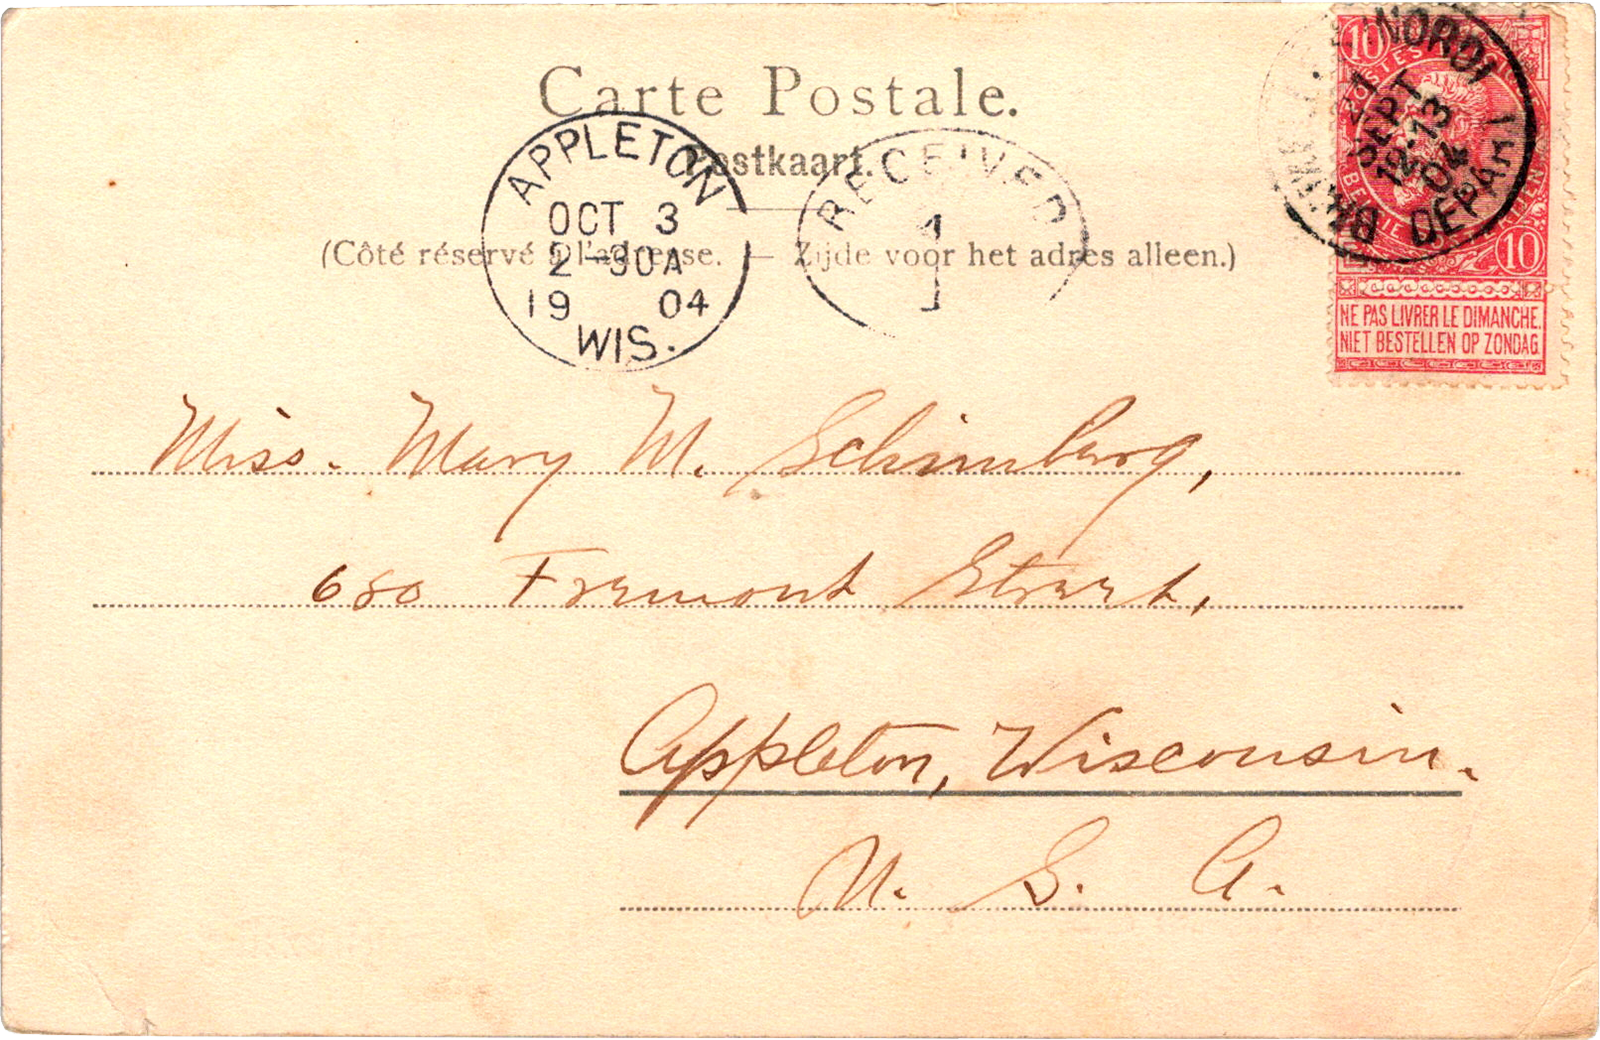 Carte Postale.
Postkaart.
(Côté réservé à l'adresse. — Zijde voor het adres alleen.)
APPLETON
OCT 3
2-30A
19 04
WIS.
RECEIVED
1
10
10
NE PAS LIVRER LE DIMANCHE.
NIET BESTELLEN OP ZONDAG
(NORD)
21
SEPT
12-13
04
DEPART
Miss. Mary M. Schimberg,
680 Fremont Street,
Appleton, Wisconsin.
U. S. A.